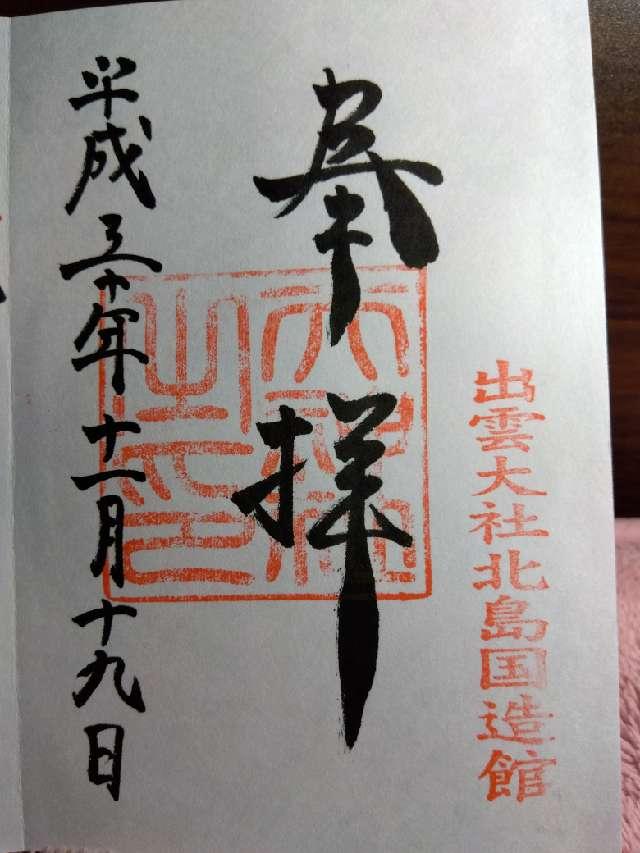 出雲大社北島国造館
奉拝
大社
之印
平成三十年十一月十九日